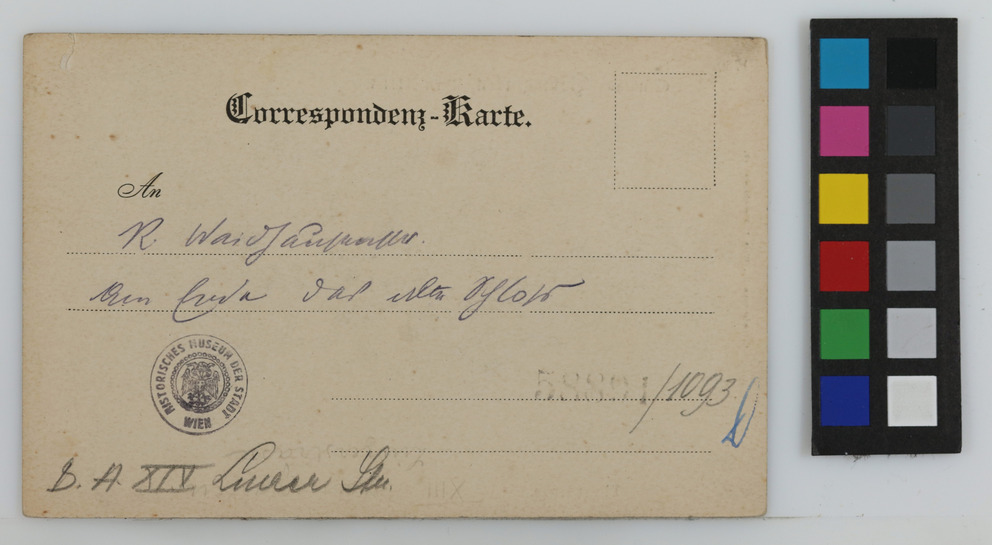 Correspondenz-Karte.
An
R. Waidhausen
Am Ende das alte Schloss
HISTORISCHES MUSEUM DER STADT WIEN
/1093
B. A. XIV Linzer Str.